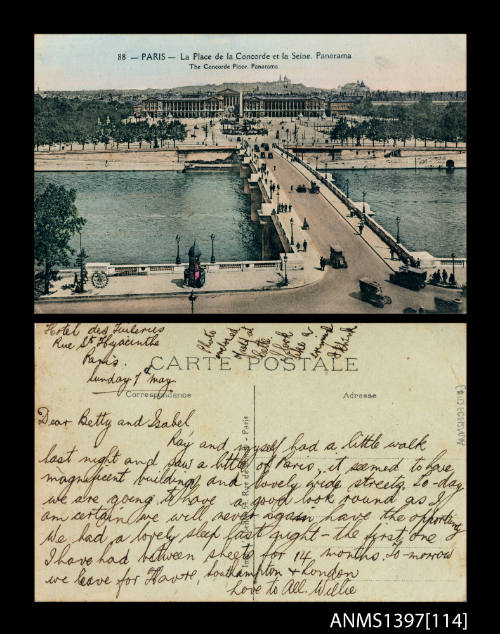 88 — PARIS — La Place de la Concorde et la Seine. Panorama
The Concorde Place. Panorama
Hotel des Tuileries
Rue St Hyacinthe
Paris.
Sunday 7th May.
Photo
look
like a
CARTE POSTALE
Correspondance
Adresse
Dear Betty and Isabel
Kay and myself had a little walk
last night and saw a little of Paris, it seemed to have
magnificent building and lovely wide streets. To-day
we are going to have a good look round as I
am certain we will never again have the opportunity
We had a lovely sleep last night - the first one
I have had between sheets for 14 months. To-morrow
we leave for Havre, Southampton & London
Love to All. Willie
Paris
ANMS1397[114]